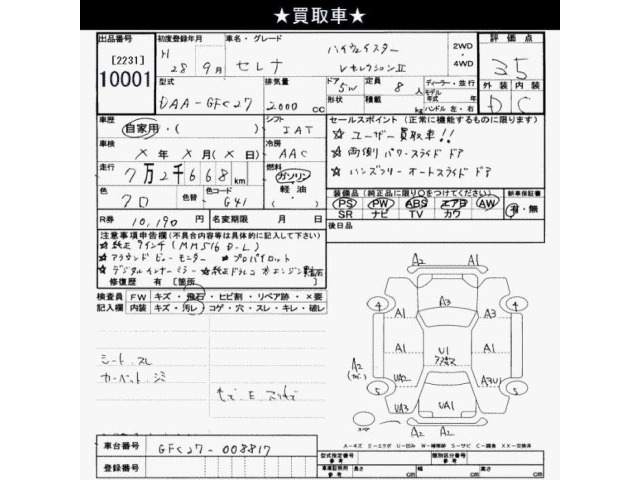 ★買取車★
出品番号 初度登録年月 車名・グレード ハイウェイスター 2WD ・ 4WD 評価点
[2231] H 28 9月 セレナ VセレクションII 3.5
10001 型式 排気量 ドア 5W 定員 8人 ディーラー・並行 外装 内装
DAA-GFC27 2000 CC 形状 積載 kg モデル 年式 年 ハンドル 左・右 D C
車歴 自家用・( ) シフト IAT セールスポイント(正常に機能するものに限ります)
☆ ユーザー買取車!!
車検 ×年 ×月(×日) 冷房 AAC ☆ 両側パワースライドドア
走行 7万2千668km 燃料 ガソリン・軽油 ☆ ハンズフリーオートスライドドア
色 クロ 色替 色コード G41 装備品(純正品に限り○をつけてください) 新車保証書
PS PW ABS エアB AW 有・無
SR ナビ TV カワ
R券 10,190円 名変期限 月 日 後日品
注意事項申告欄(不具合内容等は具体的に記入して下さい)
☆純正9インチ(MM516D-L)
☆アラウンドビューモニター ☆プロパイロット
☆デジタルインナーミラー ☆純正ドラレコ
修復歴 有[箇所 ]
検査員記入欄 FW キズ・飛石・ヒビ割・リペア跡・×要
内装 キズ・汚レ・コゲ・穴・スレ・キレ・破レ
シート.スレ
カーペット.シミ
A2 A1
A3
4 A1 A3 4
A2 A1 U1 A1
5 UA2 A3U1 5
UA3 UA1
A2 A2
A-キズ E-エクボ U-凹み W-補修跡 S-サビ C-腐食 XX-交換済
車台番号 GFC27-008817 型式指定番号 参考 類別区分番号 参考
登録番号 車庫証明用 参考 長さ cm 幅 cm 高さ cm